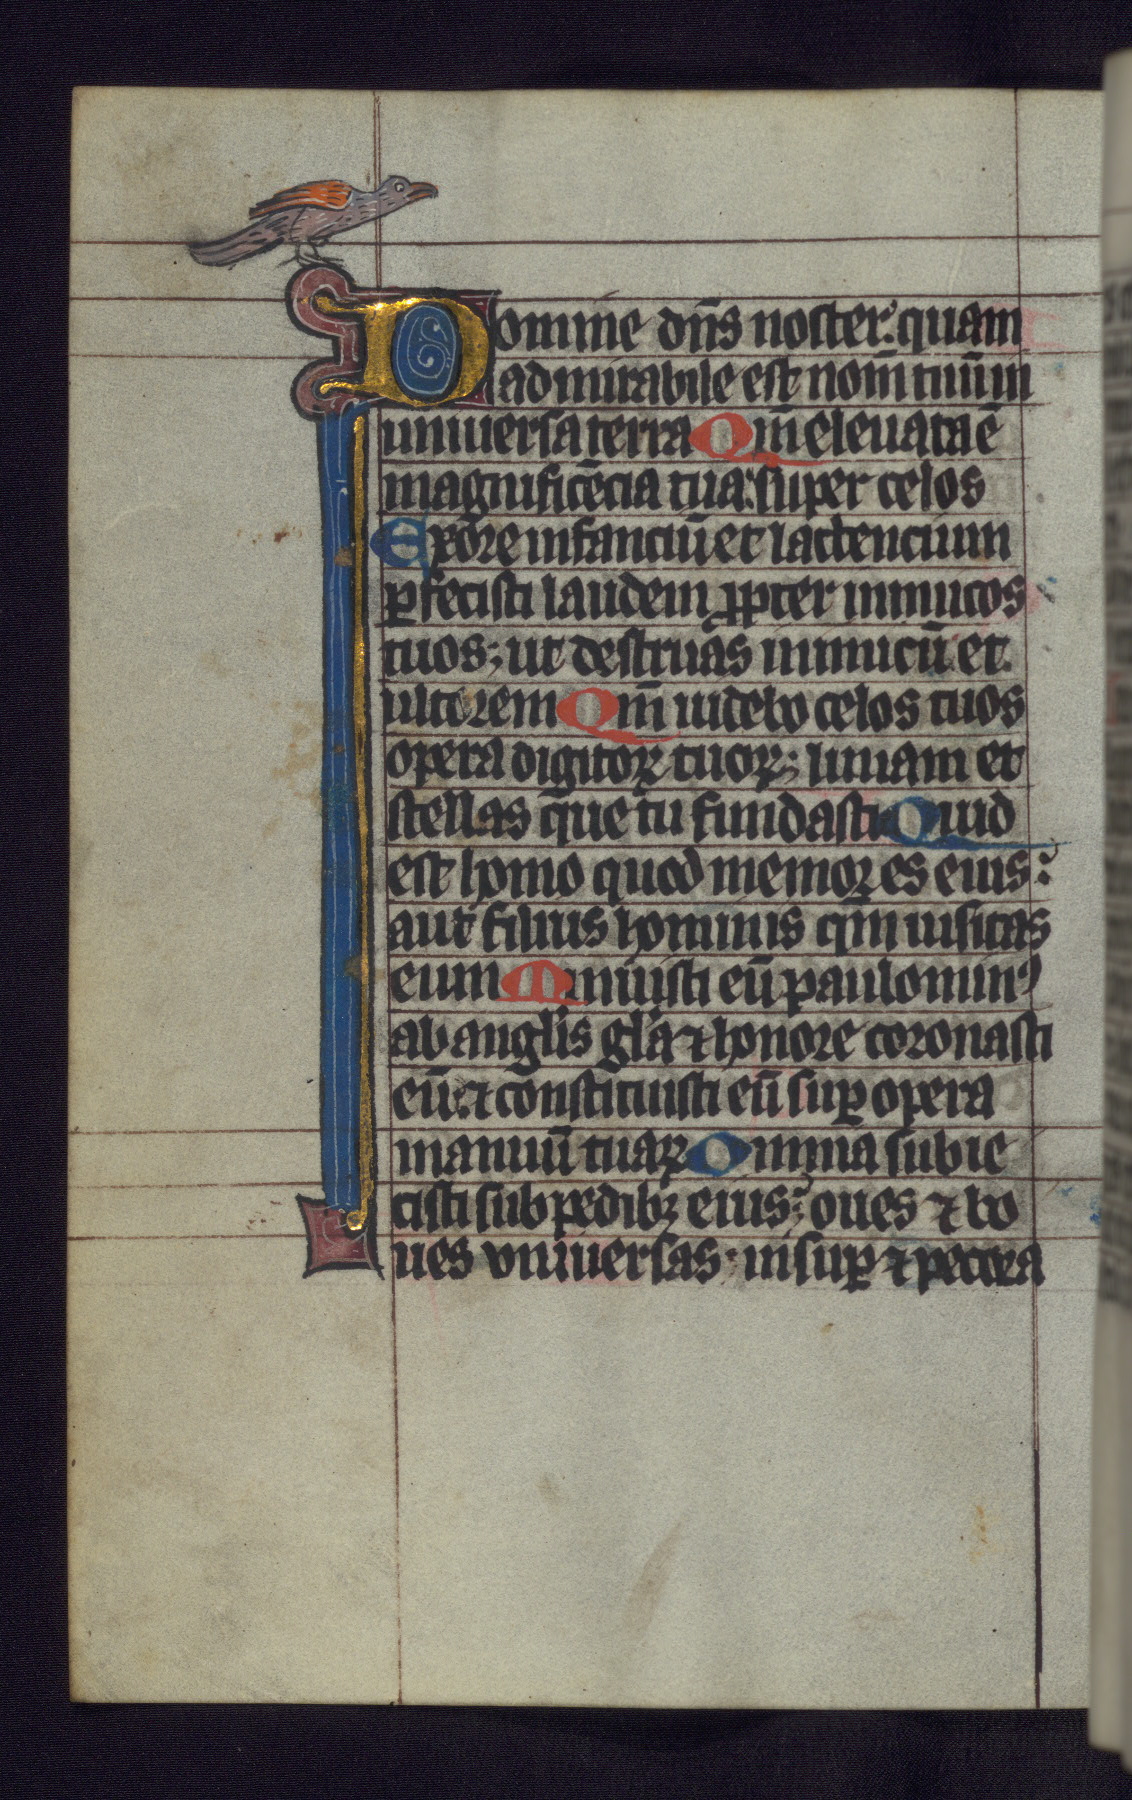 Domine dn̄s noster: quam
admirabile est nom̄ tuū in
uniuersa terra Qm̄ eleuata ē
magnificēcia tua: super celos
Ex ore infanciū et lactencium
ꝑfecisti laudem ꝓpter inimicos
tuos; ut destruas inimicū et
ultorem Qm̄ uidebo celos tuos
opera digitoꝝ tuoꝝ; lunam et
stellas q̄ue tu fundasti Quid
est homo quod memor es eius:
aut filius hominis qm̄ uisitas
eum Minuisti eū paulo minꝰ
ab angl̓is gl̓a ⁊ honore coronasti
eū: ⁊ constituisti eū suꝑ opera
manuū tuaꝝ Omnia subie
cisti sub pedibꝫ eius: oues ⁊ bo
ues vniuersas: insuꝑ ⁊ pecora